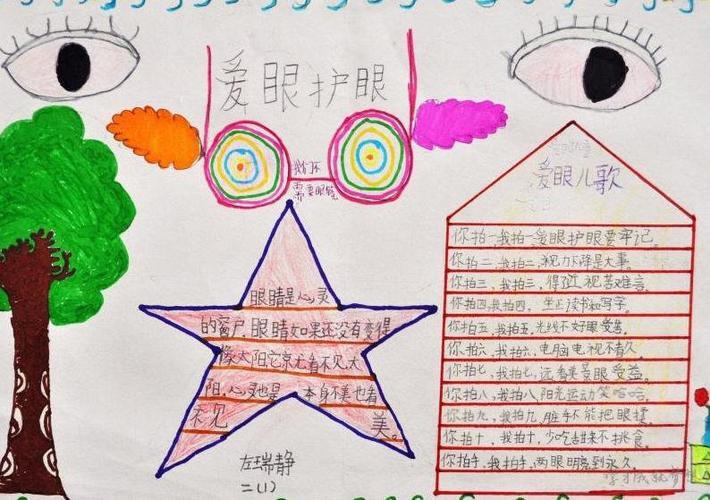 爱眼护眼
我们不
需要眼镜
爱眼儿歌
你拍一,我拍一,爱眼护眼要牢记。
你拍二,我拍二,视力下降是大事。
你拍三,我拍三,得了近视苦难言。
你拍四,我拍四,坐正读书和写字。
你拍五,我拍五,光线不好眼受害。
你拍六,我拍六,电脑电视不看久。
你拍七,我拍七,远看美景眼受益。
你拍八,我拍八,阳光运动笑哈哈。
你拍九,我拍九,脏手不能把眼揉。
你拍十,我拍十,少吃甜来不挑食。
你拍手,我拍手,两眼明亮到永久。
眼睛是心灵
的窗户,眼睛如果还没有变得
像太阳,它就看不见太
阳,心灵也是,本身不美也看
不见 美。
左瑞静
二(1)